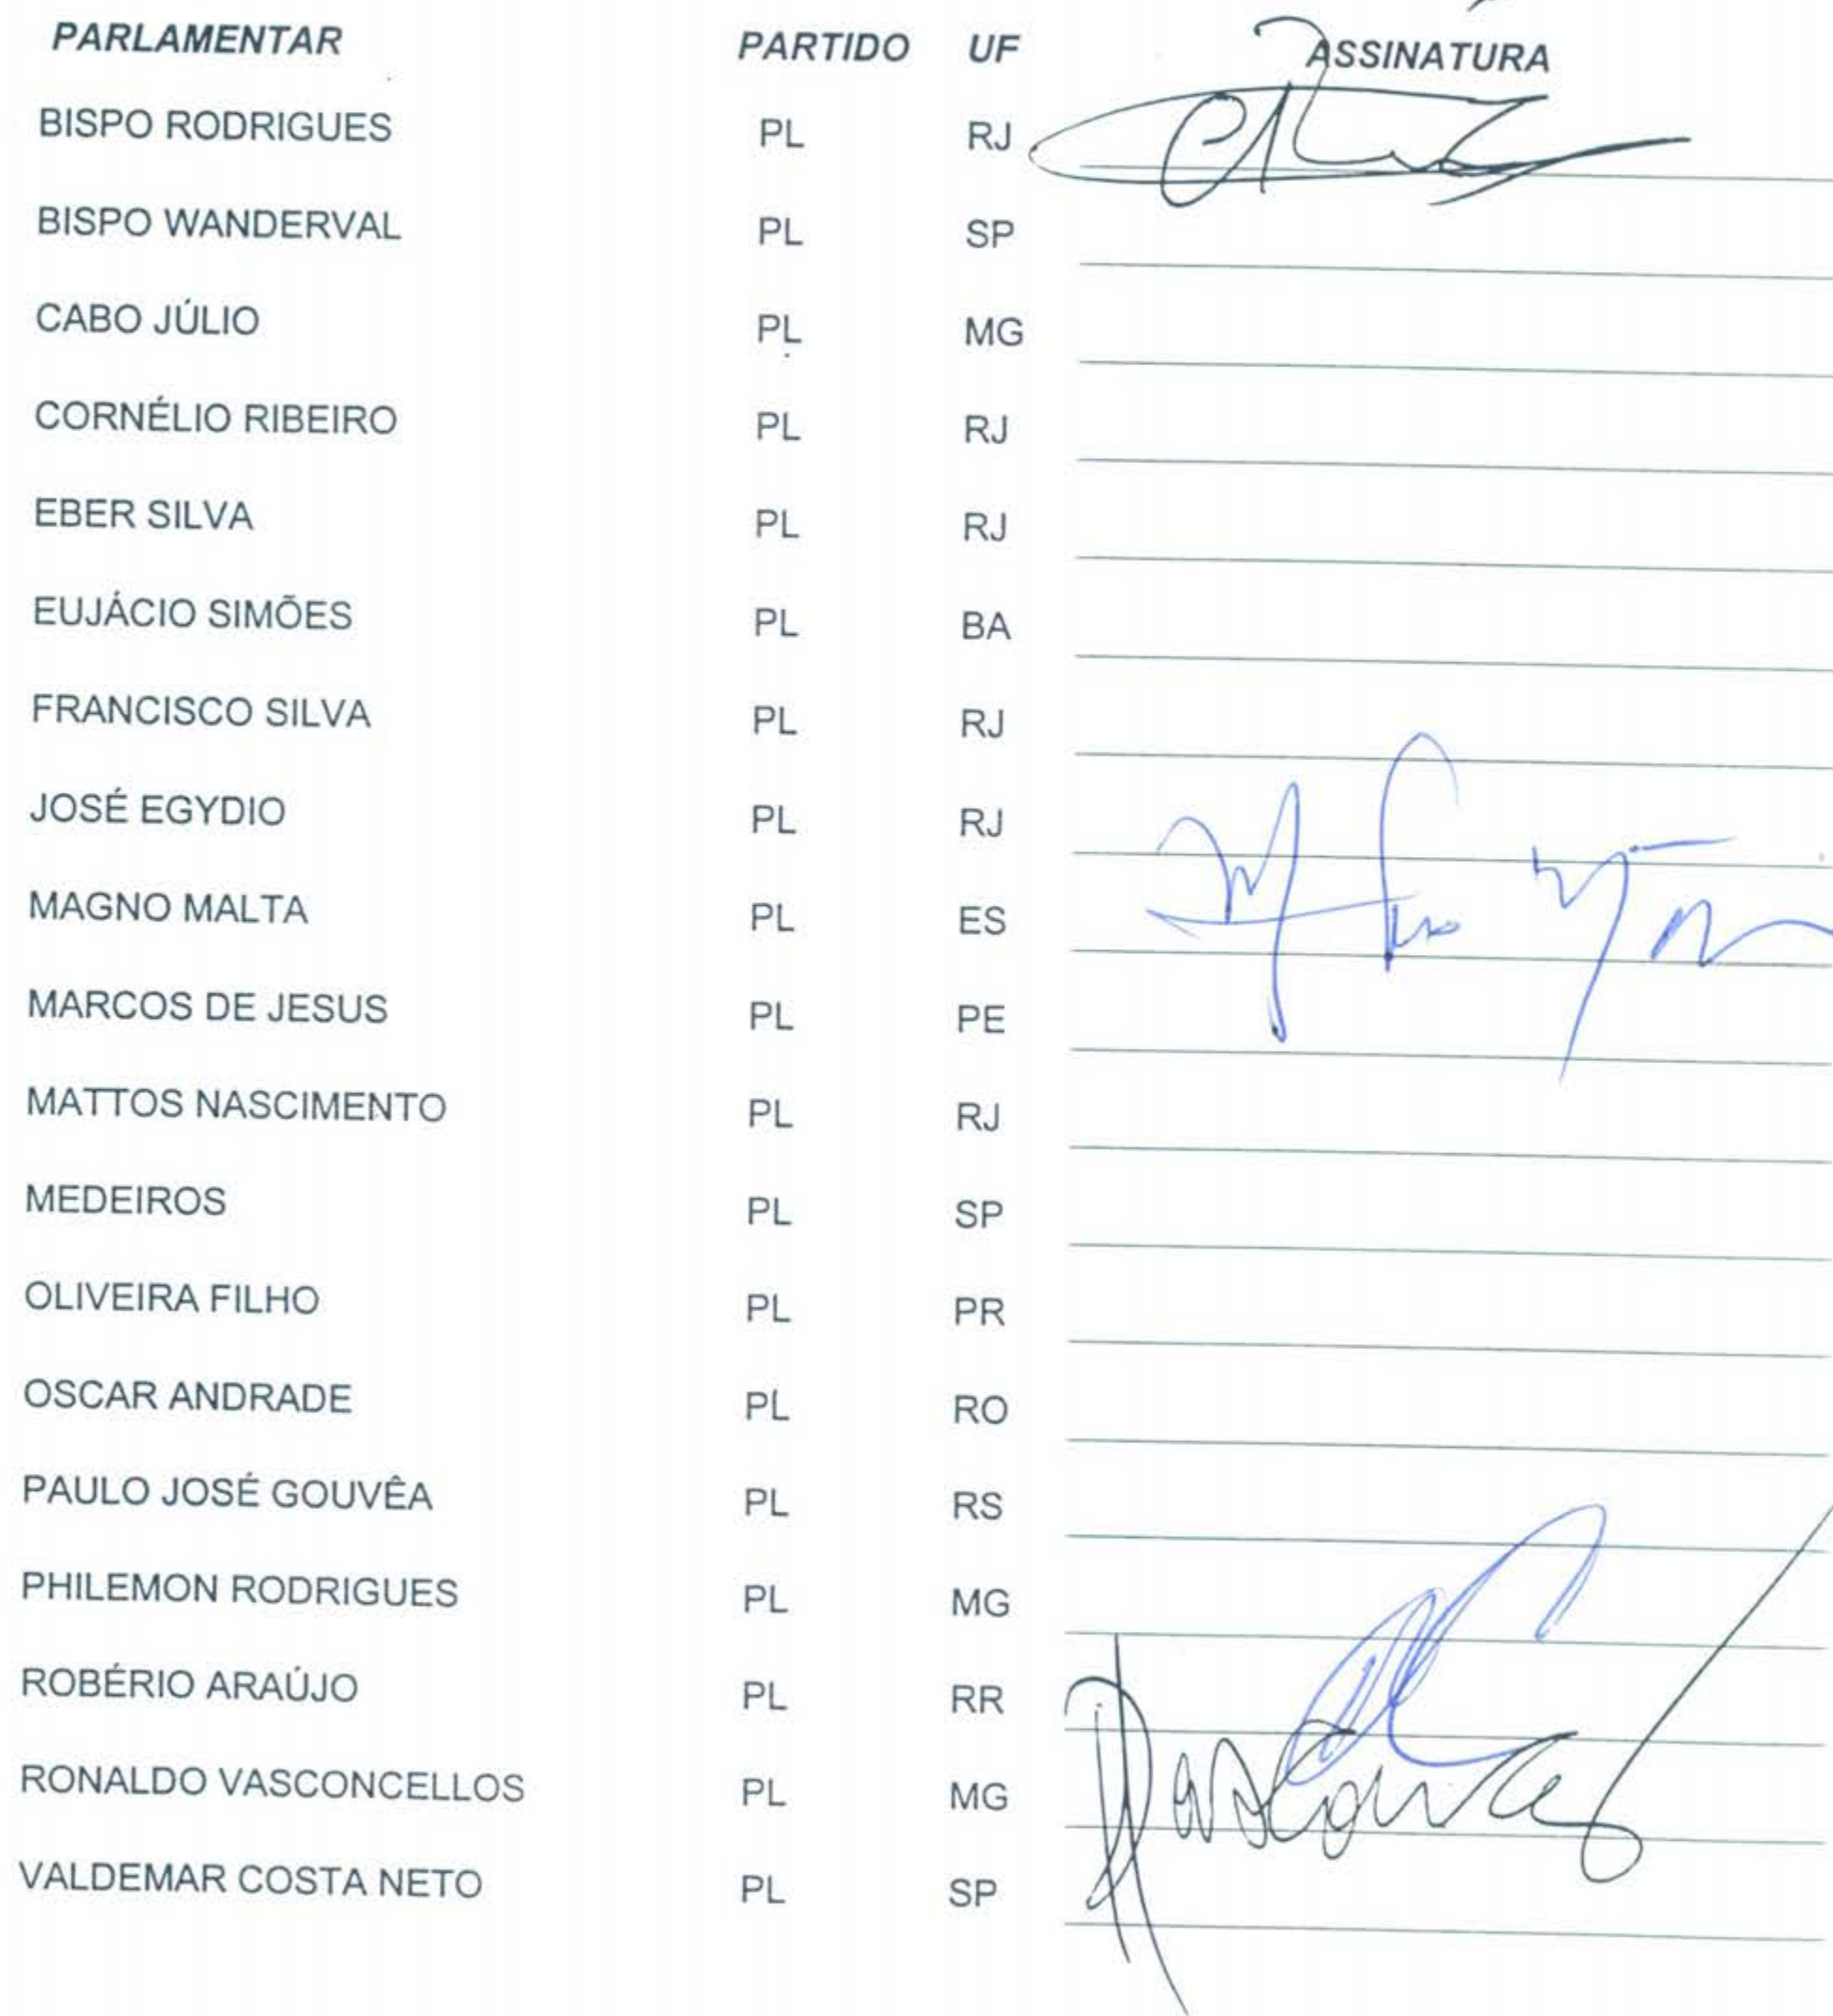 PARLAMENTAR PARTIDO UF ASSINATURA
BISPO RODRIGUES PL RJ
BISPO WANDERVAL PL SP
CABO JÚLIO PL MG
CORNÉLIO RIBEIRO PL RJ
EBER SILVA PL RJ
EUJÁCIO SIMÕES PL BA
FRANCISCO SILVA PL RJ
JOSÉ EGYDIO PL RJ
MAGNO MALTA PL ES
MARCOS DE JESUS PL PE
MATTOS NASCIMENTO PL RJ
MEDEIROS PL SP
OLIVEIRA FILHO PL PR
OSCAR ANDRADE PL RO
PAULO JOSÉ GOUVÊA PL RS
PHILEMON RODRIGUES PL MG
ROBÉRIO ARAÚJO PL RR
RONALDO VASCONCELLOS PL MG
VALDEMAR COSTA NETO PL SP